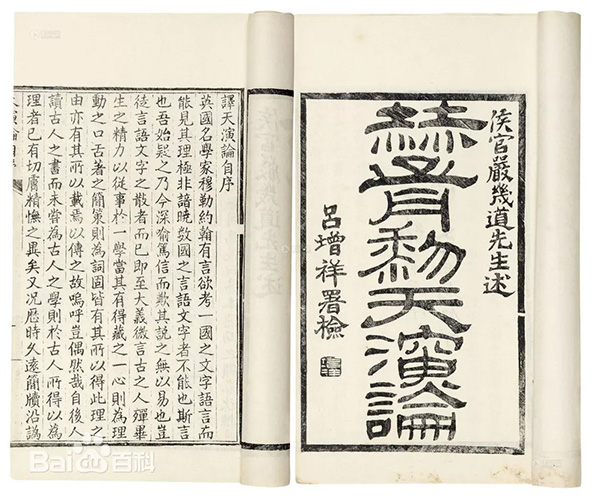 侯官嚴幾道先生述
赫胥黎天演論
呂增祥署檢
譯天演論自序
英國名學家穆勒約翰有言欲考一國之文字語言而
能見其理極非諳曉數國之言語文字者不能也斯言
也吾始疑之乃今深喻篤信而歎其說之無以易也豈
徒言語文字之散者而已即至大義微言古之人殫畢
生之精力以從事於一學當其有得藏之一心則為理
動之口舌著之簡策則為詞固皆有其所以得此理之
由亦有其所以載焉以傳之故嗚呼豈偶然哉自後人
讀古人之書而未嘗為古人之學則於古人所得以為
理者已有切膚精憮之異矣又況歷時久遠簡牘沿譌
Bai百科